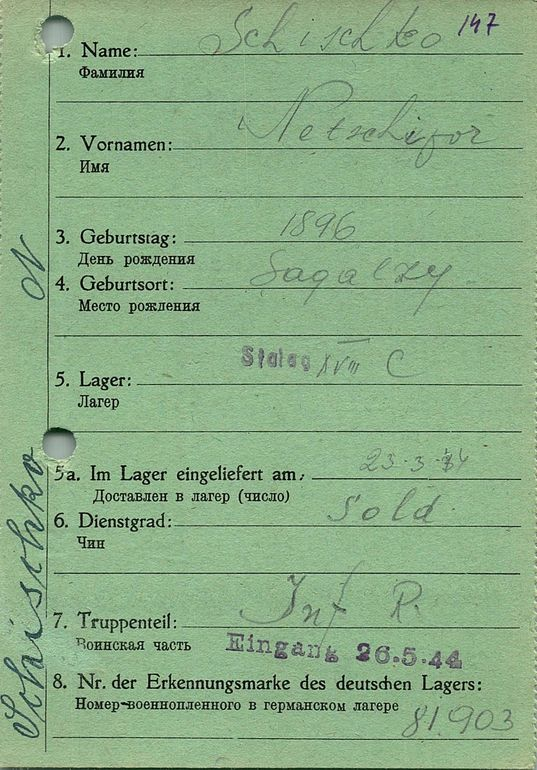 147
1. Name: Schischko
Фамилия
2. Vornamen: Netschifor
Имя
3. Geburtstag: 1896
День рождения
4. Geburtsort: Sagalzy
Место рождения
Stalag XVIII C
5. Lager:
Лагер
5a. Im Lager eingeliefert am: 23.3.44
Доставлен в лагер (число)
6. Dienstgrad: Sold
Чин
7. Truppenteil: Inf R.
Воинская часть
Eingang 26.5.44
8. Nr. der Erkennungsmarke des deutschen Lagers:
Номер военнопленного в германском лагере
81.903
Schischko N